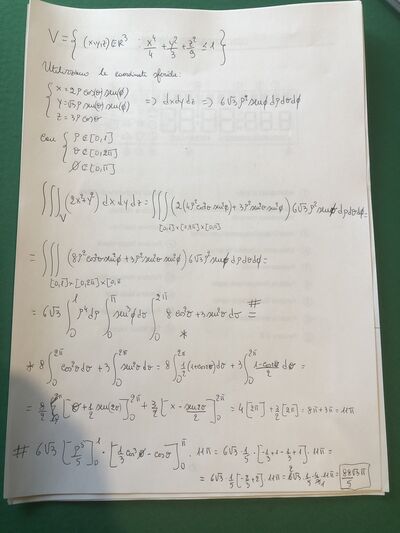 V = { (x,y,z) ∈ ℝ³ : x⁴/4 + y²/3 + z²/9 ≤ 1 }
Utilizziamo le coordinate sferiche:
{ x = 2ρ cos(θ) sen(ϕ)
y = √3 ρ sen(θ) sen(ϕ) => dxdydz => 6√3 ρ² senϕ dρ dθ dϕ
z = 3ρ cosθ
con { ρ ∈ [0,1]
θ ∈ [0,2π]
ϕ ∈ [0,π]
∭_V (2x²+y²) dx dy dz = ∭ (2(4ρ² cos²θ sen²ϕ) + 3ρ² sen²θ sen²ϕ) 6√3 ρ² senϕ dρ dθ dϕ =
[0,1]×[0,2π]×[0,π]
= ∭ (8ρ² cos²θ sen²ϕ + 3ρ² sen²θ sen²ϕ) 6√3 ρ² senϕ dρ dθ dϕ =
[0,1]×[0,2π]×[0,π
= 6√3 ∫₀¹ ρ⁴ dρ ∫₀^π sen³ϕ dθ ∫₀^2π 8 cos²θ + 3 sen²θ dθ #=
*
* 8 ∫₀^2π cos²θ dθ + 3 ∫₀^2π sen²θ dθ = 8 ∫₀^2π 1/2 (1+cos2θ) dθ + 3 ∫₀^2π (1-cos2θ)/2 dθ =
= 8/2 [θ + 1/2 sen(2θ)]₀^2π + 3/2 [x - sen2θ/2]₀^2π = 4[2π] + 3/2 [2π] = 8π + 3π = 11π
# 6√3 [ρ⁵/5]₀¹ · [1/3 cos³ϕ - cosθ]₀^π · 11π = 6√3 · 1/5 · [-1/3 + 1 - 1/3 + 1] · 11π =
= 6√3 · 1/5 [-2/3 + 2] · 11π = 6√3 · 1/5 · 4/3 · 11 = 88√3π/5